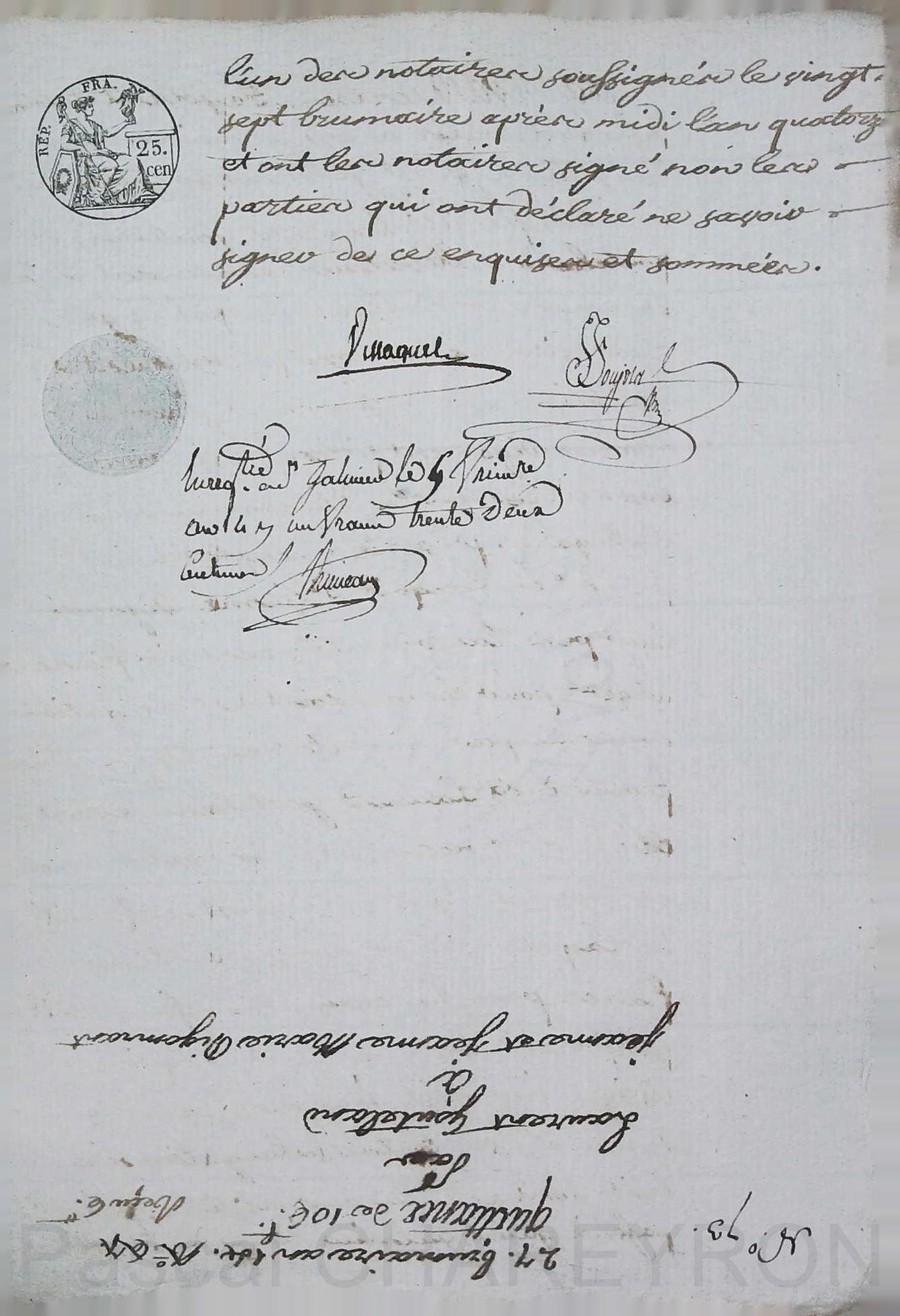 RÉP. FRA.
25.
cen
l'un des notaires soussignés le vingt-
sept brumaire après midi l'an quatorze
et ont les notaires signé non les
parties qui ont déclaré ne savoir
signer de ce enquises et sommées.
Enregtré à St Galmier le 5 frimre
an 14 Reçu un franc trente deux
Centimes
27. brumaire an 14.
N.° 73.
quittance de 106 f.
Par
Laurent
à
jeanne et jeanne Marie
Pascal CHAREYRON